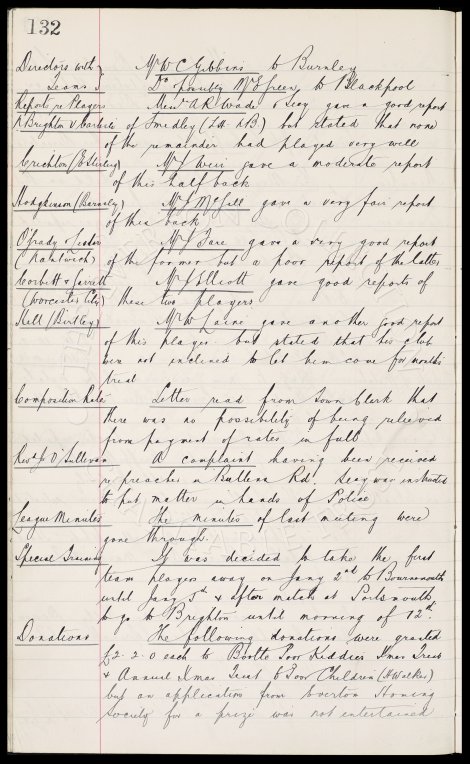 132
Directors with } Mr W C Gibbins to Burnley
Teams } Do possibly Mr Green to Blackpool
Reports re Players Messrs A R Wade & Secy gave a good report
R Brighton v Carlisle of Smedley (L.H. R B) but stated that none
of the remainder had played very well
Crichton (E Stirling) Mr J Weir gave a moderate report
of this half back
Hodgkinson (Barnsley) Mr J McGill gave a very fair report
of this back
O'Grady & Lister Mr J Fare gave a very good report
(Nantwich) of the former but a poor report of the latter
Corbett & Jarrett Mr J Elliott gave good reports of
(Worcester City) these two players
Hall (Birtley) Mr W Laine gave another good report
of this player but stated that his club
were not inclined to let him come for month's
trial
Composition Rate Letter read from Town Clerk that
there was no possibility of being relieved
from payment of rates in full
Revd J O'Sullivan A complaint having been received
re preacher in Bullens Rd. Secy was instructed
to put matter in hands of Police
League Minutes The minutes of last meeting were
gone through.
Special Training It was decided to take the first
team players away on Jany 2nd to Bournemouth
until Jany 5th & after match at Portsmouth
to go to Brighton until morning of 12th.
Donations The following donations were granted
£2-2-0 each to Bootle Poor Kiddies Xmas Treat
& Annual Xmas Treat to Poor Children (H Walker)
but an application from Everton Homing
Society for a prize was not entertained